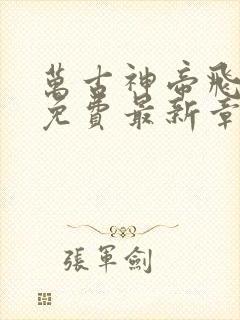 萬古神帝飛
免費最新章
張軍劍